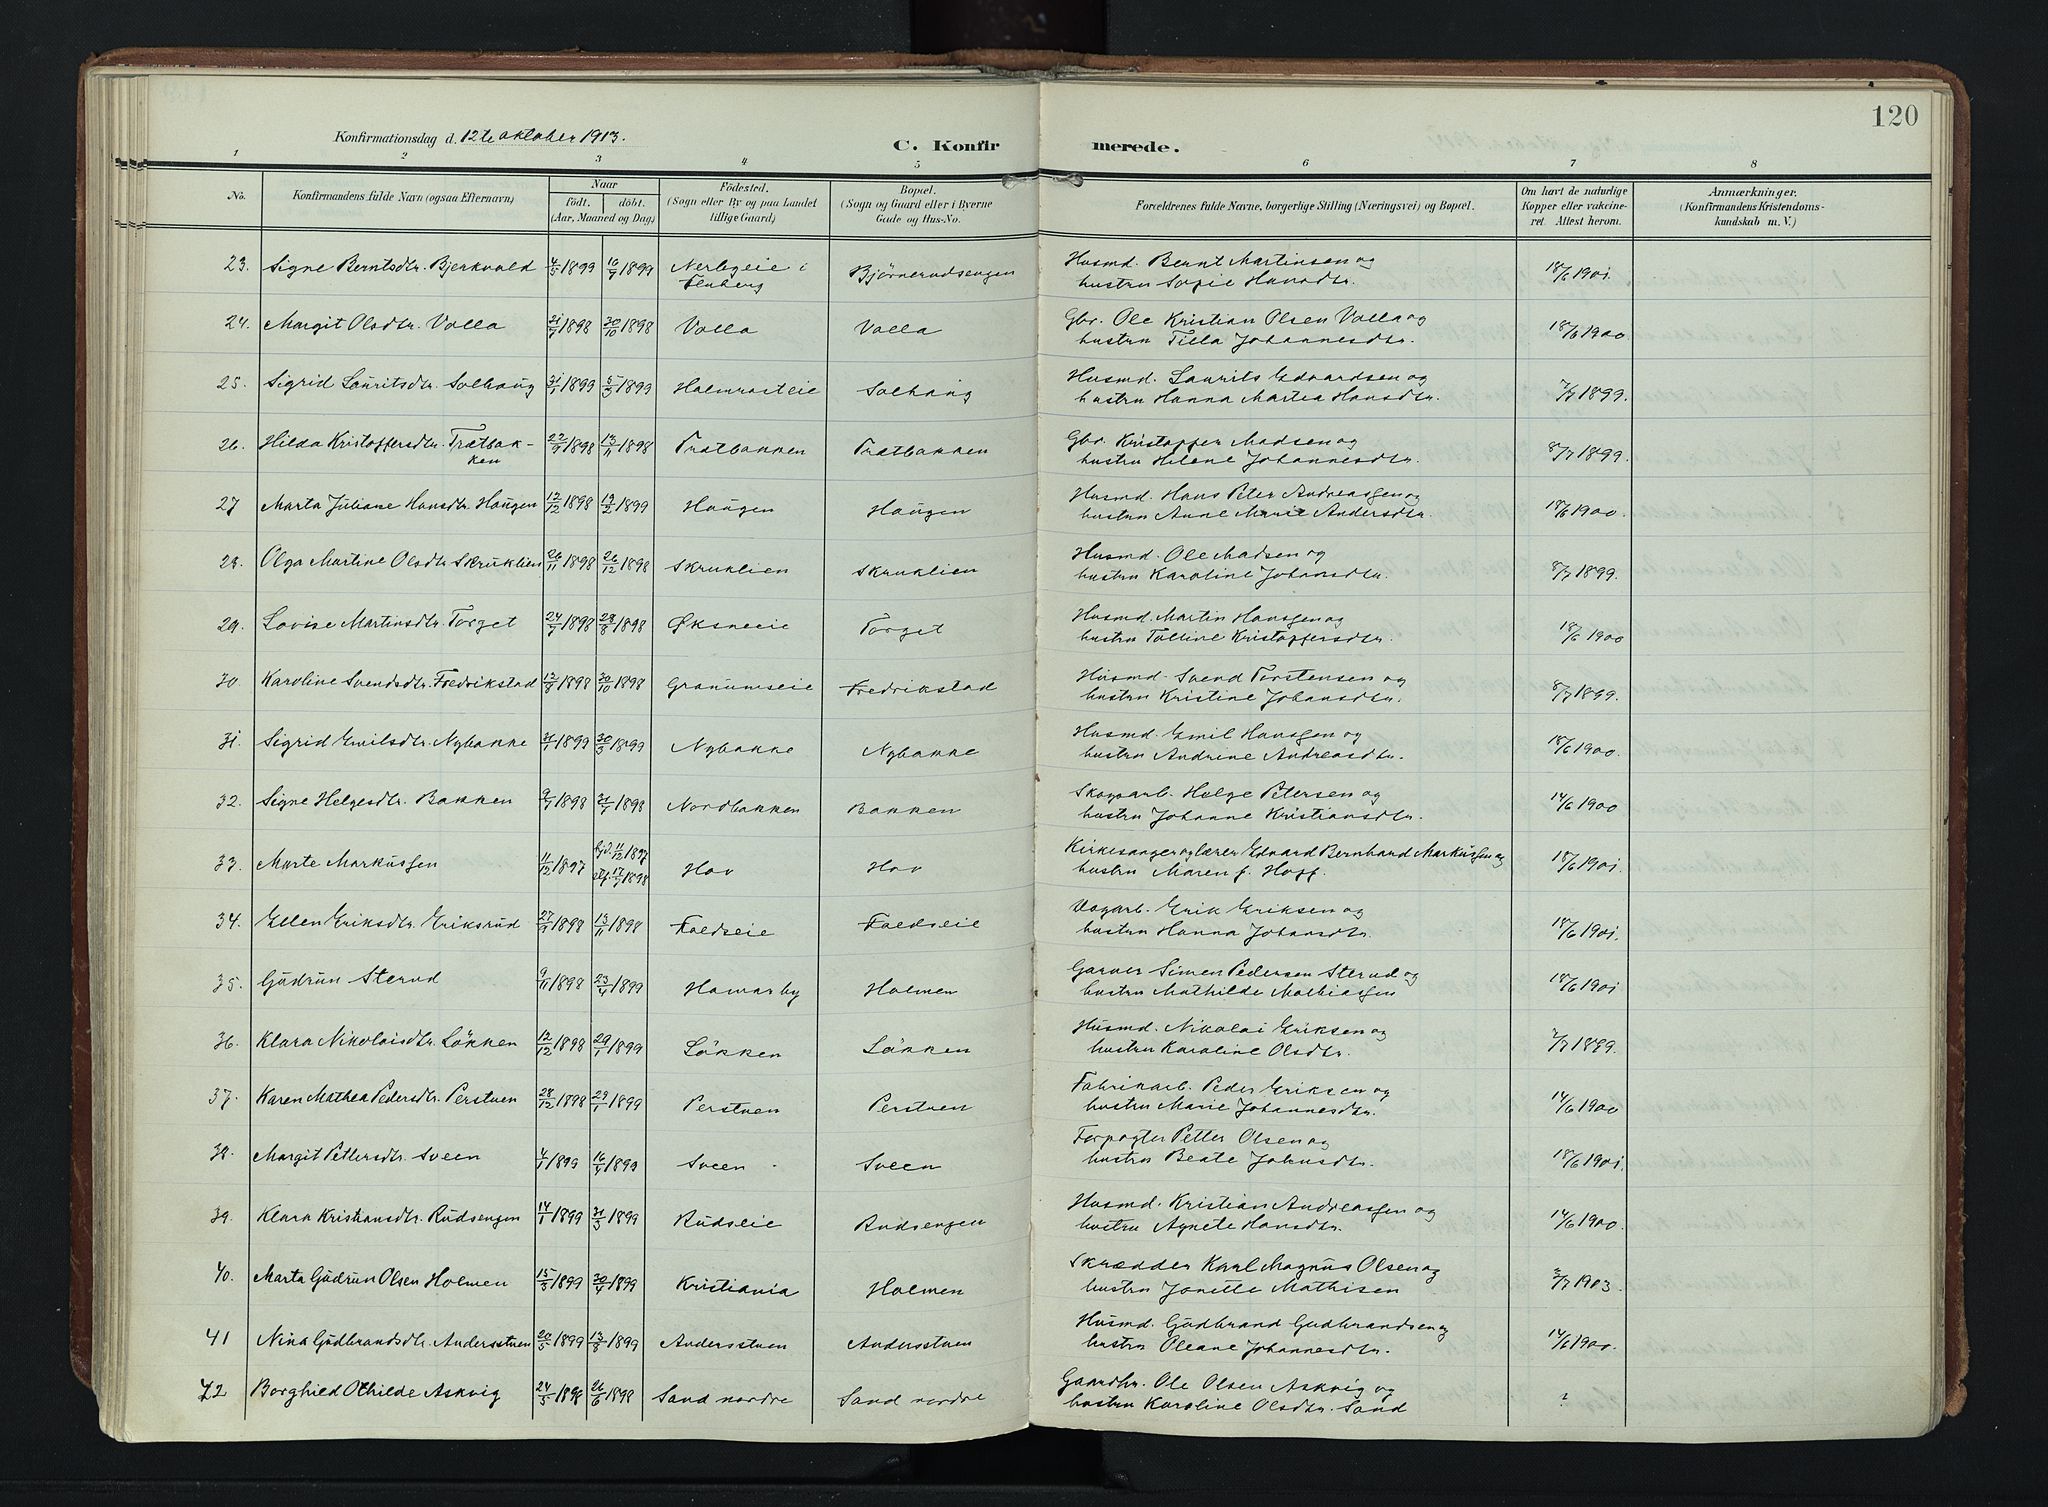 120
Konfirmationsdag d. 12te oktober 1913.
C. Konfirmerede.
1 2 3 4 5 6 7 8
No. Konfirmandens fulde Navn (ogsaa Efternavn) Naar født. døbt. (Aar, Maaned og Dag) Fødested. (Sogn eller By og paa Landet tillige Gaard) Bopæl. (Sogn og Gaard eller i Byerne Gade og Hus-No. Forældrenes fulde Navne, borgerlige Stilling (Næringsvei) og Bopæl. Om havt de naturlige Kopper eller vakcineret. Attest herom. Anmærkninger. (Konfirmandens Kristendomskundskab m. V.)
23. Signe Berntsdtr. Bjerkvold 4/5 1899 16/7 1899 Nerbyeie i Bjørnerudsengen Husmd. Bernt Martinsen og 18/6 1901.
hustru Sofie Hansdtr.
24. Margit Olsdtr. Volla 21/7 1898 30/10 1898 Volla Volla Gbr. Ole Kristian Olsen Volla og 18/6 1900.
hustru Tilla Johannesdtr.
25. Sigrid Lauritsdtr. Solhaug 31/1 1899 5/3 1899 Holmrasteie Solhaug Husmd. Laurits Edvardsen og 7/7 1899.
hustru Hanna Martea Hansdtr.
26. Hilda Kristoffersdtr. Trætbak- 22/9 1898 13/11 1898 Trætbakken Trætbakken Gbr. Kristoffer Madsen og 8/7 1899.
ken hustru Helene Johannesdtr.
27 Marta Juliane Hansdtr. Haugen 12/12 1898 19/2 1899 Haugen Haugen Husmd. Hans Peter Andreassen og 18/6 1900.
hustru Anne Marie Andersdtr.
28. Olga Martine Olsdtr. Skruklien 26/11 1898 26/12 1898 Skruklien Skruklien Husmd. Ole Madsen og 8/7 1899.
hustru Karoline Johansdtr.
29. Lovise Martinsdtr. Torget 24/7 1898 28/8 1898 Øksneeie Torget Husmd. Martin Hanssen og 18/6 1900
hustru Talline Kristoffersdtr.
30. Karoline Svendsdtr. Fredrikstad 12/8 1898 30/10 1898 Granumseie Fredrikstad Husmd. Svend Torstensen og 8/7 1899.
hustru Kristine Johansdtr.
31. Sigrid Emilsdtr. Nybakke 31/1 1899 30/3 1899 Nybakke Nybakke Husmd. Emil Hanssen og 18/6 1900.
hustru Andrine Andreasdtr.
32. Signe Helgesdtr. Bakken 9/7 1898 31/7 1898 Nordbakken Bakken Skogarb. Helge Petersen og 14/6 1900
hustru Johanne Kristiansdtr.
33. Marte Markussen 11/12 1897 hjd. 11/12 1897 Hov Hov Kirkesanger og lærer Edvard Bernhard Markussen og 18/6 1901.
17/7 1898 hustru Maren f. Hoff.
34. Ellen Eriksdtr. Eriksrud 27/9 1898 13/11 1898 Foldseie Foldseie Vogarb. Erik Eriksen og 18/6 1901.
hustru Hanna Johansdtr.
35. Gudrun Sterud 9/11 1898 23/4 1899 Hamar by Holmen Garver Simen Pedersen Sterud og 18/6 1901
hustru Mathilde Mathiassen
36. Klara Nikolaisdtr. Løkken 12/12 1898 29/1 1899 Løkken Løkken Husmd. Nikolai Eriksen og 7/7 1899.
hustru Karoline Olsdtr.
37. Karen Mathea Pedersdtr. Perstuen 28/12 1898 29/1 1899 Perstuen Perstuen Fabrikarb. Peder Eriksen og 14/6 1900
hustru Marie Johannesdtr.
38. Margit Pettersdtr. Sveen 4/1 1899 16/4 1899 Sveen Sveen Forpagter Petter Olsen og 18/6 1901.
hustru Beate Johnsdtr.
39. Klara Kristiansdtr. Rudsengen 14/1 1899 31/3 1899 Rudseie Rudsengen Husmd. Kristian Andreassen og 14/6 1900.
hustru Agnete Hansdtr.
40. Marta Gudrun Olsen Holmen 15/3 1899 30/4 1899 Kristiania Holmen Skrædder Karl Magnus Olsen og 3/7 1903.
hustru Jonette Mathisen
41 Nina Gudbrandsdtr. Andersstuen 20/5 1899 13/8 1899 Andersstuen Andersstuen Husmd. Gudbrand Gudbrandsen og 14/6 1900.
hustru Oleane Johannesdtr.
42 Borghild Othilde Askvig 24/5 1898 26/6 1898 Sand nordre Sand nordre Gaardbr. Ole Olsen Askvig og ?
hustru Karoline Olsdtr. Sand